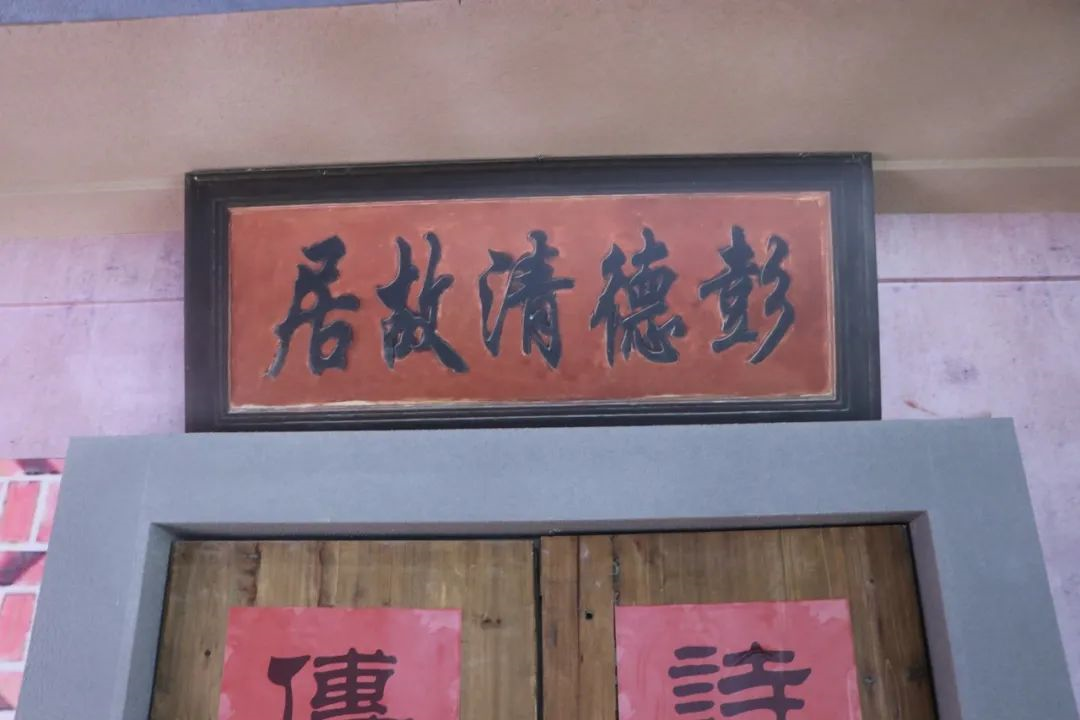 彭德清故居
詩
傳